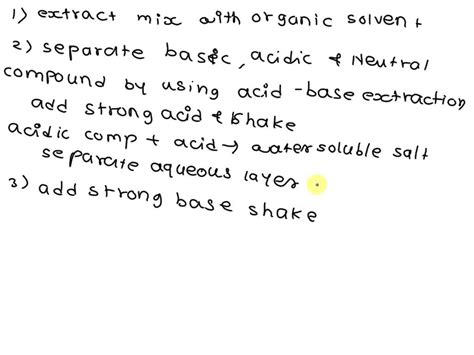 1) extract mix with organic solvent
2) separate basic, acidic & Neutral
compound by using acid-base extraction
add strong acid & shake
acidic comp + acid → water soluble salt
separate aqueous layers
3) add strong base shake